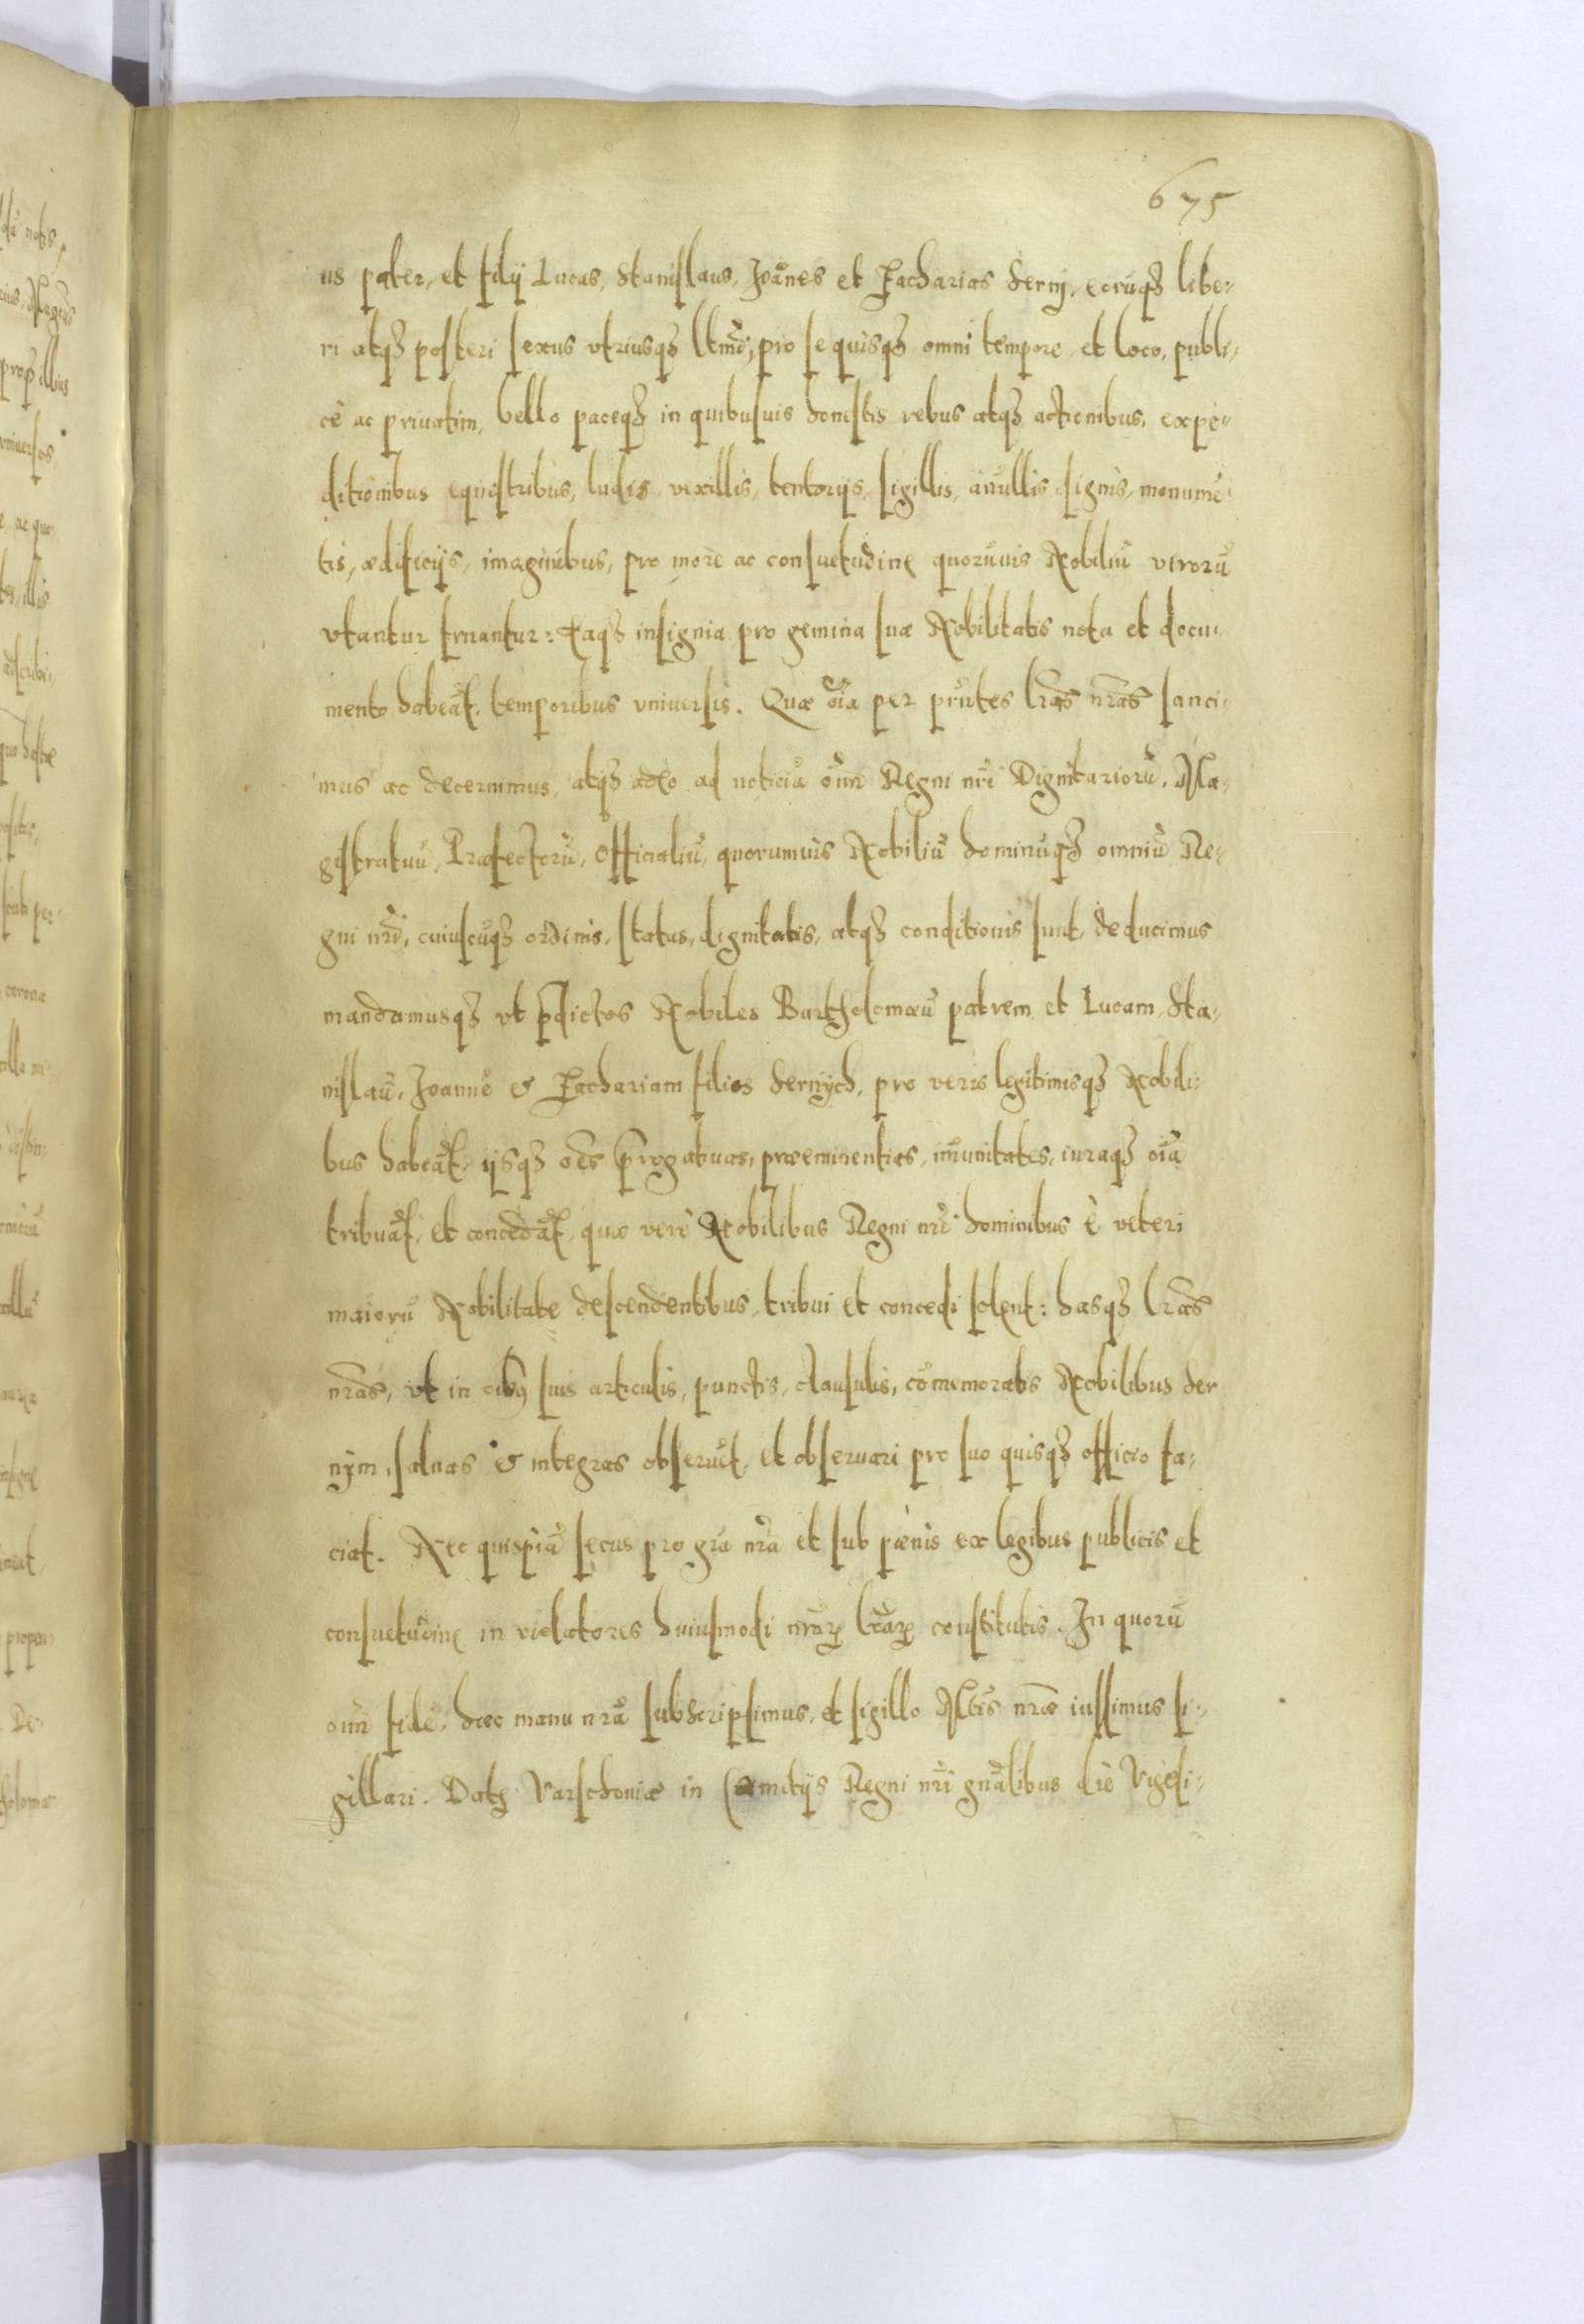 675
us pater, et filij Lucas, Stanislaus, Joānes et Zacharias Serny, eorūq3 libe-
ri atq3 posteri sexus vtriusq3 ltimi, pro se quisq3 omni tempore et loco, publi-
cè ac priuatim, bello paceq3 in quibusuis honestis rebus atq3 actionibus, expe-
ditionibus equestribus, ludis, vexillis, tentorijs, sigillis, añullis, signis, monumē-
tis, ædificijs, imaginibus, pro more ac consuetudine quorūuis Nobiliū virorū
vtantur fruantur: Eaq3 insignia pro gemina suæ Nobilitatis nota et docu-
mento habeāt temporibus vniuersis. Quæ oīa per pr̃ntes lr̃as nr̃as sanci-
mus ac decernimus, atq3 adeo ad noticiā oīm Regni nr̃i Dignitariorū, Ma-
gistratuū, Præfectorū, Officialiū, quorumuis Nobiliū hominūq3 omniū Re-
gni nr̃i, cuiuscūq3 ordinis, status, dignitatis, atq3 conditionis sunt, deducimus
mandamusq3 vt p̃dictos Nobiles Bartholomæū patrem et Lucam, Sta-
nislaū, Joannē & Zachariam filios Sernych, pro veris legitimisq3 Nobili-
bus habeāt, ijsq3 oēs p̃rogatiuas, præeminentias, im̃unitates, iuraq3 oīa
tribuāt, et concedāt, quæ verè Nobilibus Regni nr̃i hominibus è veteri
maiorū Nobilitate descendentibus, tribui et concedi solent: hasq3 lr̃as
nr̃as, vt in oibꝫ suis articulis, punctis, clausulis, cōmemoratis Nobilibus Ser-
nym, saluas & integras obseruēt, et obseruari pro suo quisq3 officio fa-
ciat. Nec quispiā secus pro gr̃a nr̃a et sub pænis ex legibus publicis et
consuetudine in violatores huiusmodi nr̃arꝝ lr̃arꝝ constitutis. In quorū
oīm fidē, hæc manu nr̃a subscripsimus, et sigillo Mtis nr̃æ iussimus si-
gillari. Datꝫ Varschouiæ in Comitijs Regni nr̃i gnālibus die Vigesi-